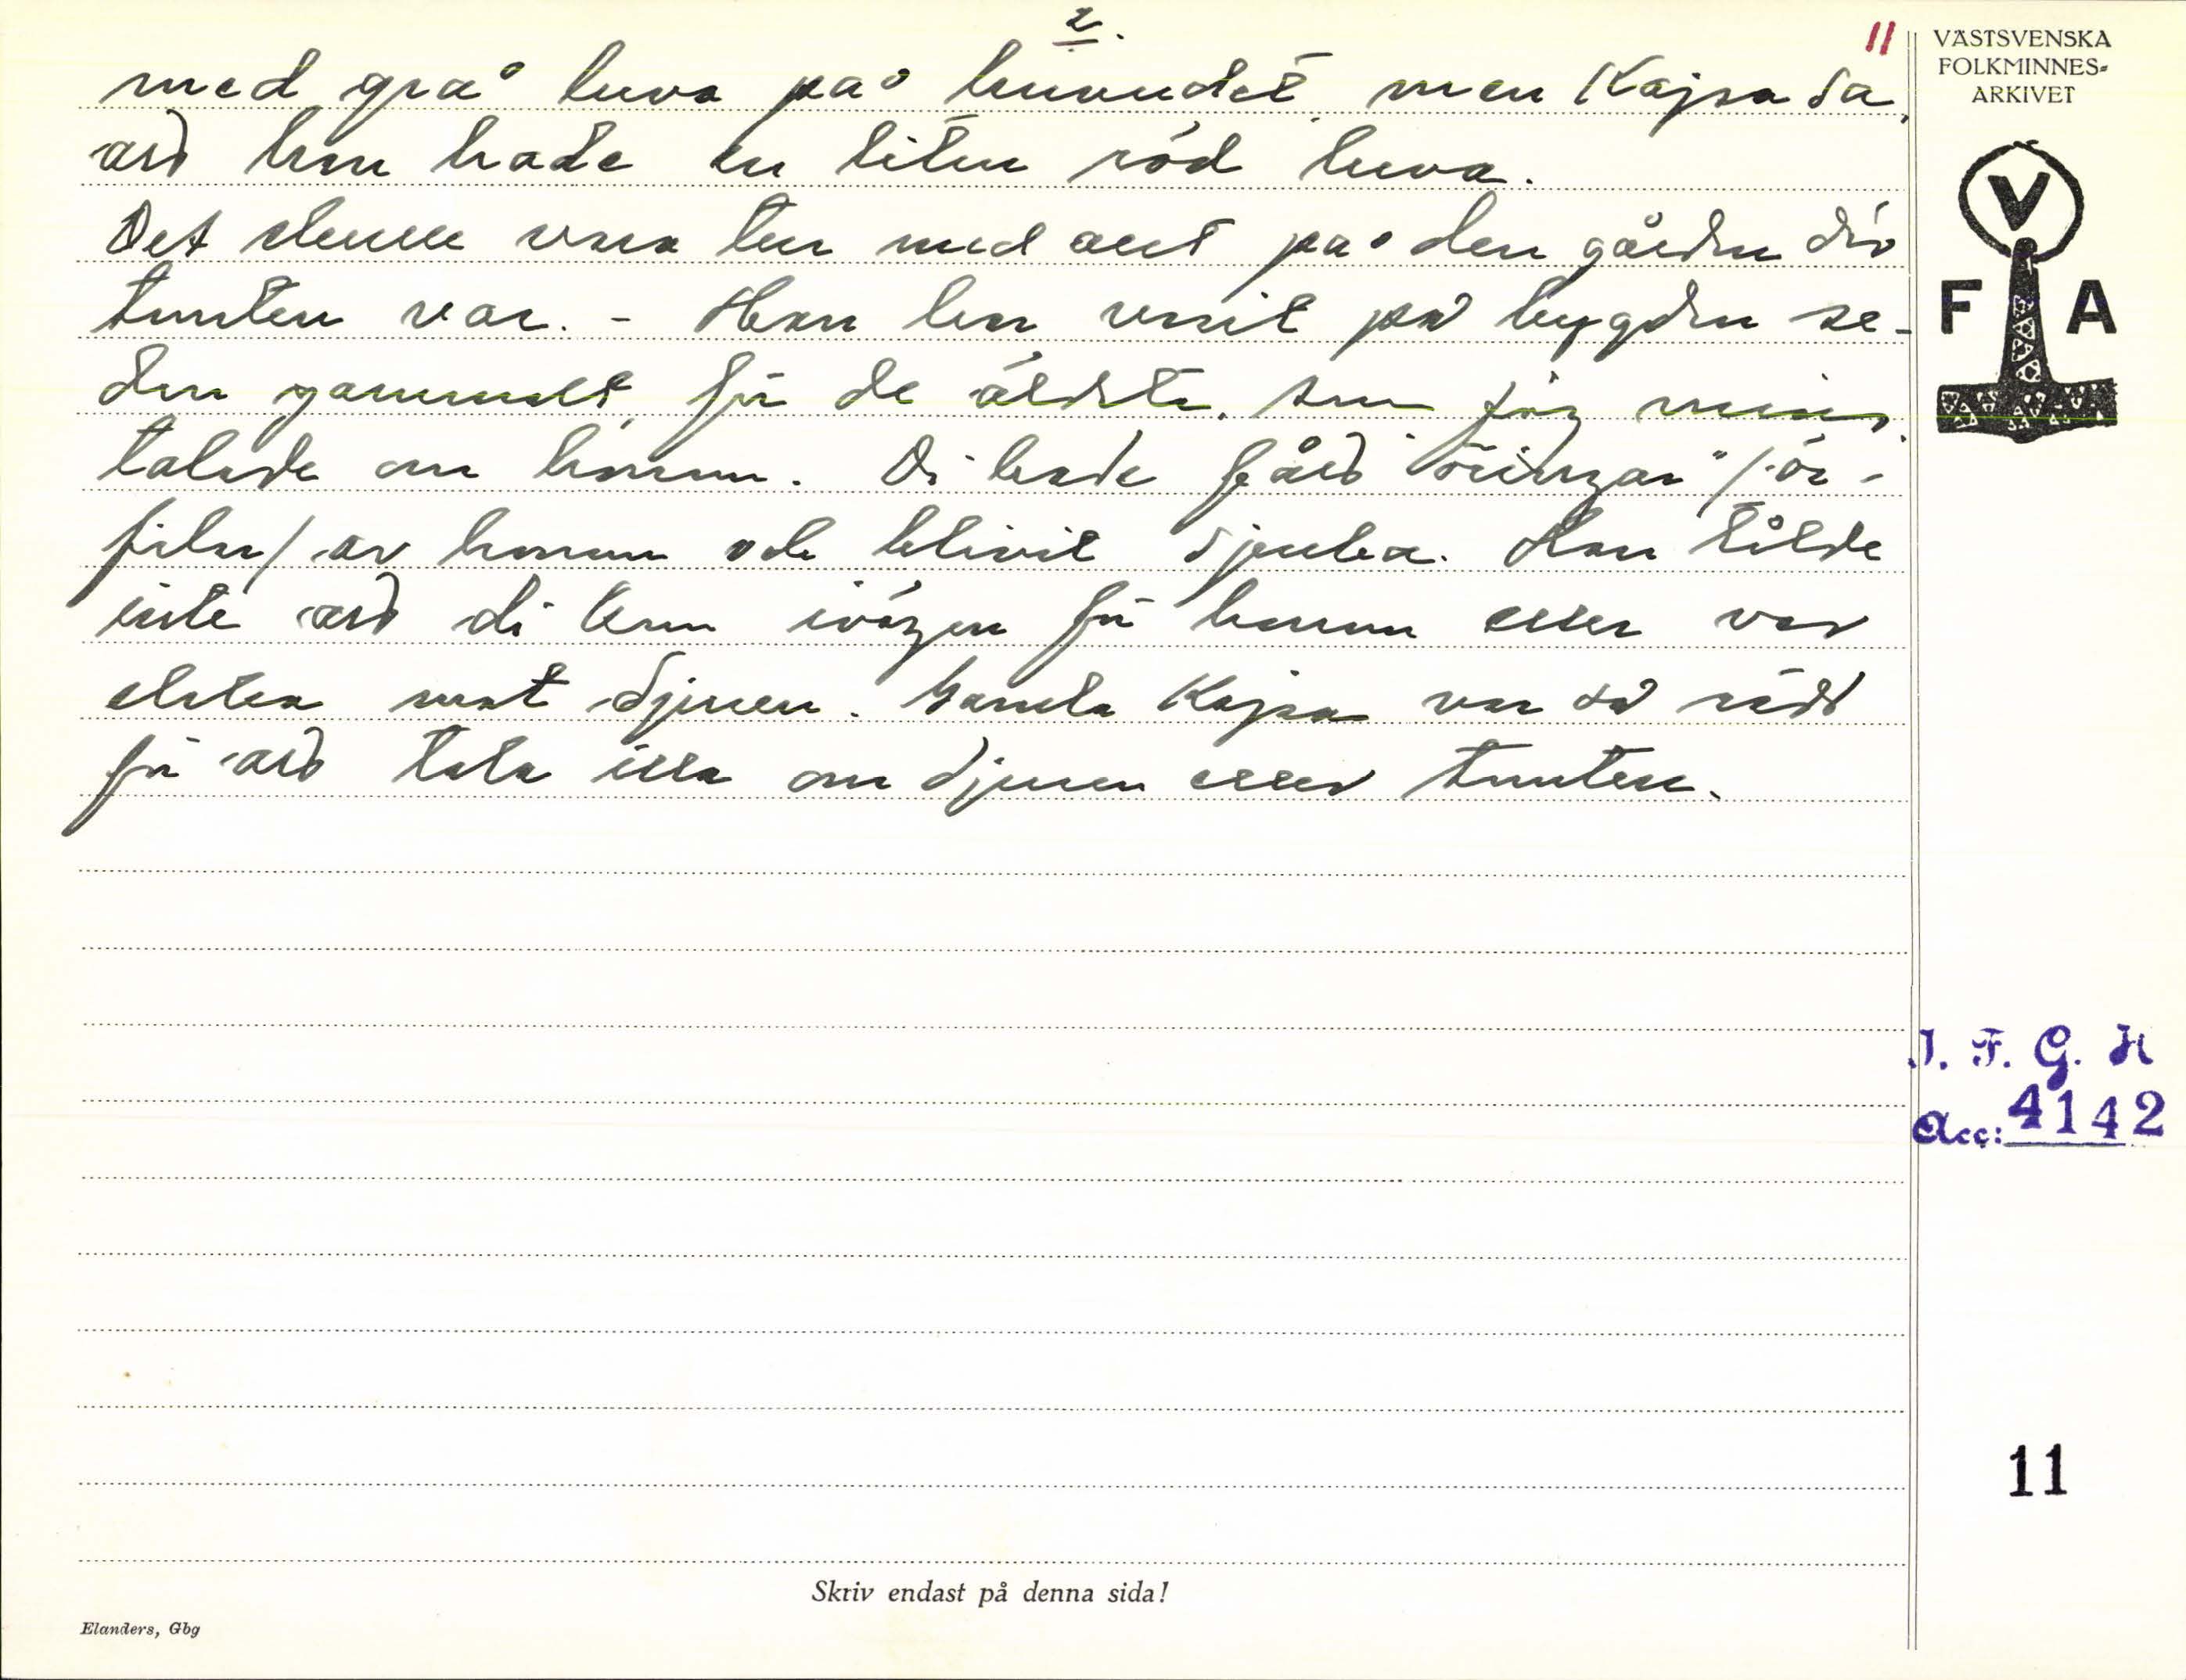 2.
11
med grå luva på huvudet, men Kajsa sa,
att han hade en liten röd luva.
Det skulle vara tur med allt på den gården där
tomten var. - Han har varit på bygden se-
dan gammalt, för de äldsta, som jag minns,
talade om honom. Di hade fått "öringar" /ör-
filar/ av honom och blivit sjuka. Han tålde
inte att di kom ivägen för honom eller var
elaka mot djuren. Gamla Kajsa var så rädd
för att tala illa om djuren eller tomten.
VÄSTSVENSKA
FOLKMINNES-
ARKIVET
V
F A
I. F. G. H
Acc: 4142
11
Skriv endast på denna sida!
Elanders, Gbg